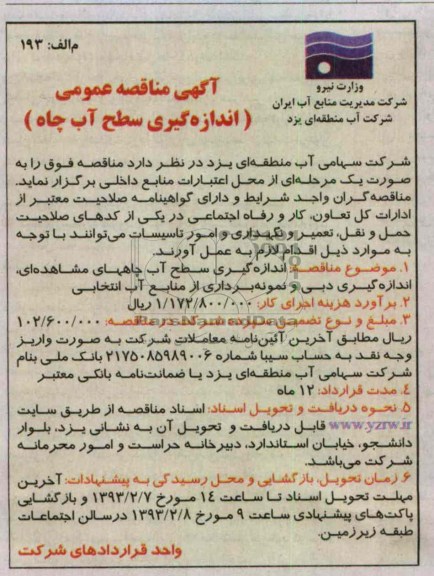 م‌الف: ۱۹۳
وزارت نیرو
شرکت مدیریت منابع آب ایران
شرکت آب منطقه‌ای یزد
آگهی مناقصه عمومی
( اندازه‌گیری سطح آب چاه )
شرکت سهامی آب منطقه‌ای یزد در نظر دارد مناقصه فوق را به
صورت یک مرحله‌ای از محل اعتبارات منابع داخلی برگزار نماید.
مناقصه‌گران واجد شرایط و دارای گواهینامه صلاحیت معتبر از
ادارات کل تعاون، کار و رفاه اجتماعی در یکی از کدهای صلاحیت
حمل و نقل، تعمیر و نگهداری و امور تاسیسات می‌توانند با توجه
به موارد ذیل اقدام لازم به عمل آورند.
۱. موضوع مناقصه: اندازه‌گیری سطح آب چاههای مشاهده‌ای،
اندازه‌گیری دبی و نمونه‌برداری از منابع آب انتخابی
۲. برآورد هزینه اجرای کار: ۱/۱۷۲/۸۰۰/۰۰۰ ریال
۳. مبلغ و نوع تضمین سپرده شرکت در مناقصه: ۱۰۲/۶۰۰/۰۰۰
ریال مطابق آخرین آئین‌نامه معاملات شرکت به صورت واریز
وجه نقد به حساب سیبا شماره ۲۱۷۵۰۸۵۹۸۹۰۰۶ بانک ملی بنام
شرکت سهامی آب منطقه‌ای یزد یا ضمانت‌نامه بانکی معتبر
۴. مدت قرارداد: ۱۲ ماه
۵. نحوه دریافت و تحویل اسناد: اسناد مناقصه از طریق سایت
www.yzrw.ir قابل دریافت و تحویل آن به نشانی یزد، بلوار
دانشجو، خیابان استاندارد، دبیرخانه حراست و امور محرمانه
شرکت می‌باشد.
۶. زمان تحویل، بازگشایی و محل رسیدگی به پیشنهادات: آخرین
مهلت تحویل اسناد تا ساعت ۱۴ مورخ ۱۳۹۳/۲/۷ و بازگشایی
پاکت‌های پیشنهادی ساعت ۹ مورخ ۱۳۹۳/۲/۸ درسالن اجتماعات
طبقه زیرزمین.
واحد قراردادهای شرکت